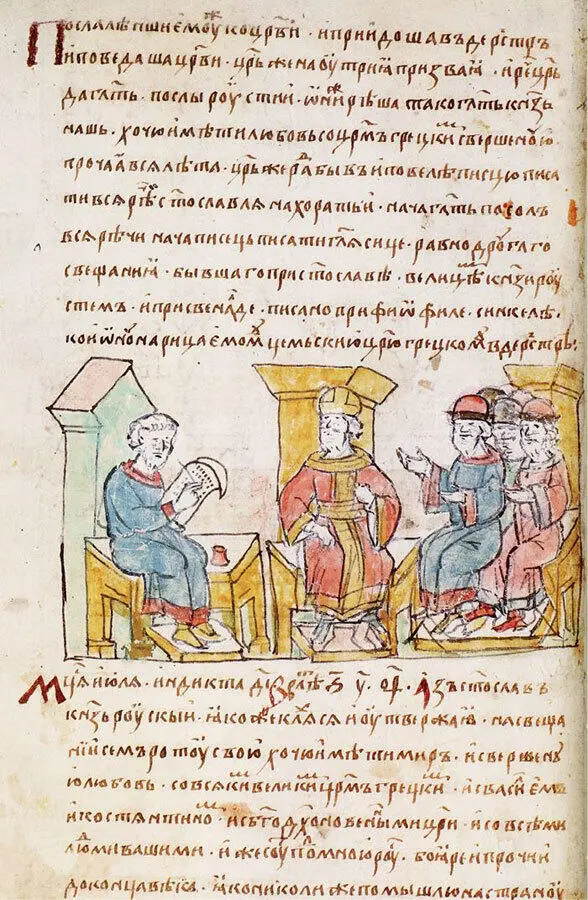 Посла лѣпшие моуⷤ ко цр҃ви · и приидоша въ дерⷭстръ
и поведаша цр҃ви · цр҃ь же на оутриꙗ призва ꙗ · и реⷱ цр҃ь
да глть · послы роустии · ѡни ⷤ рѣша тако глть кнзь
нашь · хочю имѣти любовь со црмъ грецкиⷨ свершеною
прочаа вся лѣта · цр҃ь же раⷣ бывъ и повелѣ писцю писа
ти вся рѣⷱ стославля на хоратьи · нача глть посолъ
вся рѣчи нача писець писати гл҃я сице · равно дрогаго
свещаниа · бывшаго при стославѣ · велицѣⷨ кнзи роу
стемъ · и при свеналде · писано при фиѡфиле · синкелѣ
к ѡноⷨ нарицаемоⷨ цемьскии црю грецкомꙋ въ дерⷭстре
Мца июля · индикта дı҃ в лѣⷮ ҂ѕ҃ у҃ · азъ стославъ
кнзь роускыи · ꙗко же кляся и оутвержаю · на свеща
нии семъ ротоу свою хочю имѣти миръ · и свершену
ю любовь · со всякиⷨ великиⷨ црмъ грецкиⷨ · и с васиемъ
и костянтиноⷨ · и с бгодхоновеными цри · и со всѣми
люⷣми вашими · и же соуⷮ по мною роуⷭ · бояре и прочии
до конца вѣка · ꙗко николи же помышлю на страноу